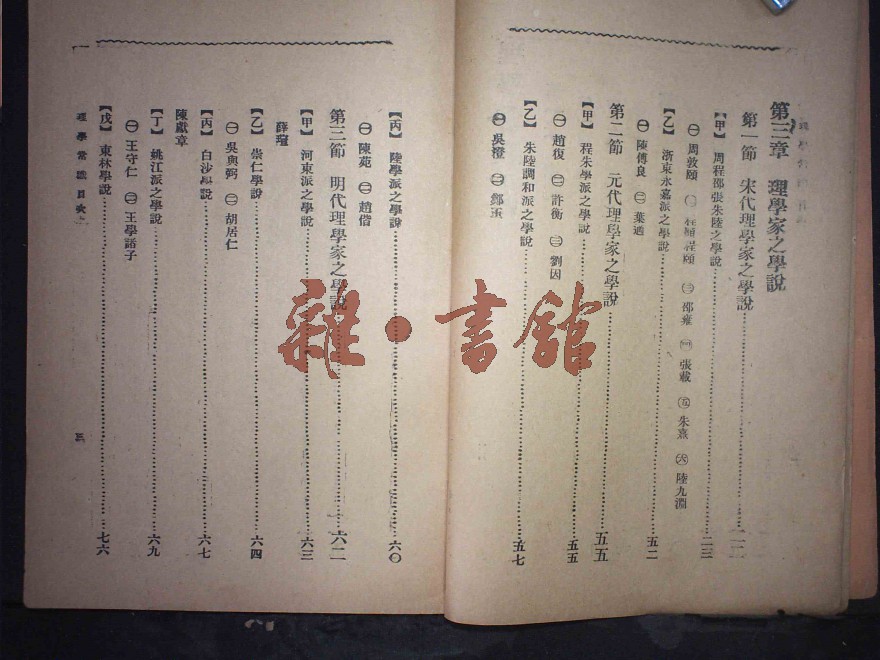 第三章 理學家之學說
第一節 宋代理學家之學說
【甲】 周程邵張朱陸之學說 二三
㊀ 周敦頤 ㊁ 程顥程頤 ㊂ 邵雍 ㊃ 張載 ㊄ 朱熹 ㊅ 陸九淵
【乙】 浙東永嘉派之學說 五二
㊀ 陳傅良 ㊁ 葉適
第二節 元代理學家之學說 五五
【甲】 程朱學派之學說 五五
㊀ 趙復 ㊁ 許衡 ㊂ 劉因
【乙】 朱陸調和派之學說 五七
㊀ 吳澄 ㊁ 鄭玉
【丙】 陸學派之學說 六〇
㊀ 陳苑 ㊁ 趙偕
第三節 明代理學家之學說 六二
【甲】 河東派之學說 六三
薛瑄
【乙】 崇仁學說 六四
㊀ 吳與弼 ㊁ 胡居仁
【丙】 白沙學說 六七
陳獻章
【丁】 姚江派之學說 六九
㊀ 王守仁 ㊁ 王學諸子
【戊】 東林學說 七六
理學常識目次 三
雜·書館